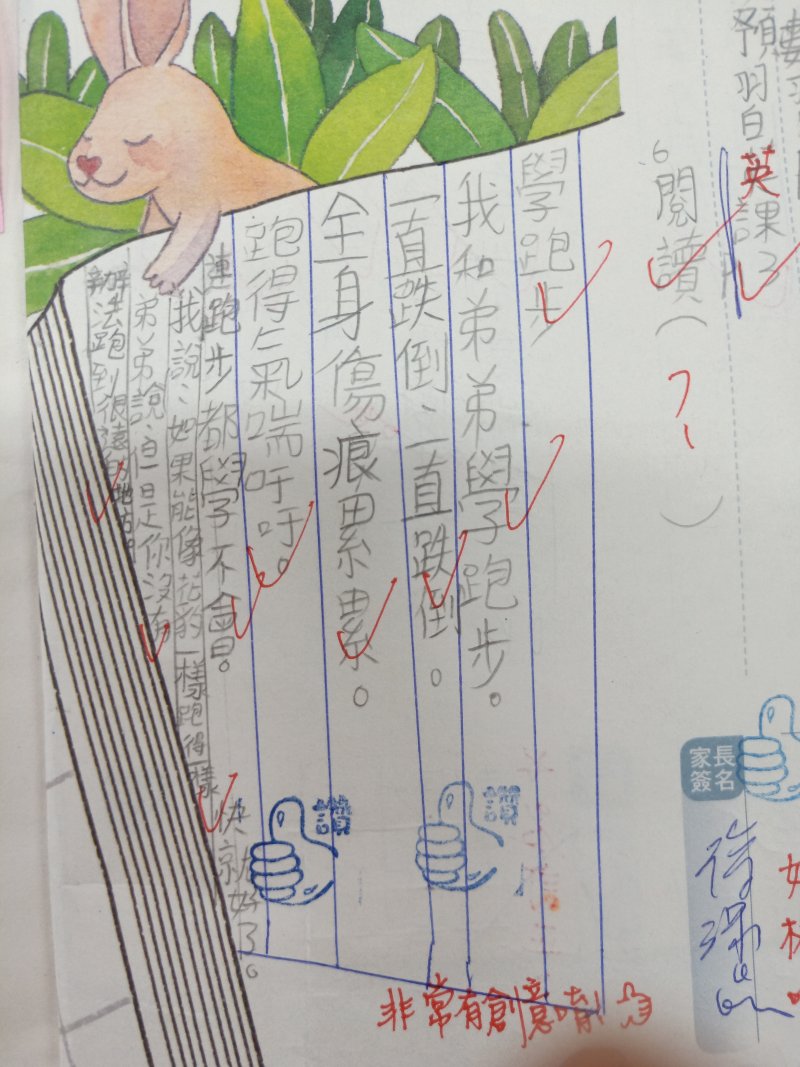 預習自
英
課了
6閱讀(?)
學跑步
我和弟弟學跑步。
一直跌倒、一直跌倒。
全身傷痕累累。
跑得氣喘吁吁。
連跑步都學不會。
我說：如果能像花豹一樣跑得一樣快就好了。
弟弟說：但是你沒有
辦法跑到很遠的地方。
讚
讚
非常有創意唷！
家長簽名